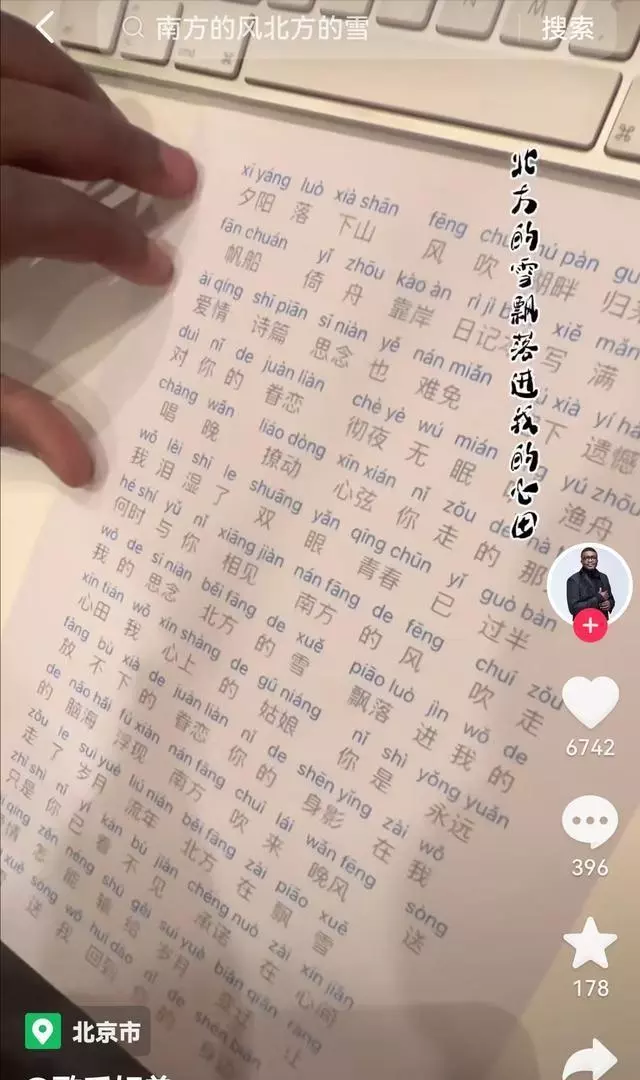 南方的风北方的雪 搜索
北方的雪飘落进我的心田
xī yáng luò xià shān fēng
夕阳 落 下山 风 吹 湖畔
fān chuán yǐ zhōu kào àn rì jì xiě mǎn
帆船 倚舟 靠岸 日记 写 满
ài qíng shī piān sī niàn yě nán miǎn
爱情 诗篇 思念 也 难免 下 遗憾
duì nǐ de juàn liàn chè yè wú mián yú zhōu
对你的 眷恋 彻夜 无眠 渔舟
chàng wǎn liáo dòng xīn xián nǐ zǒu de
唱晚 撩动 心弦 你走的那
wǒ lèi shī le shuāng yǎn qīng chūn yǐ guò bàn
我泪湿了 双眼 青春 已 过半
hé shí yǔ nǐ xiāng jiàn nán fāng de fēng chuī zǒu
何时与你 相见 南方 的 风 吹走
wǒ de sī niàn běi fāng de xuě piāo luò jìn wǒ de
我的 思念 北方 的 雪 飘落 进 我的
xīn tián wǒ xīn shàng de gū niáng nǐ shì yǒng yuǎn
心田 我 心上 的 姑娘 你是 永远
fàng bú xià de juàn liàn nǐ de shēn yǐng zài wǒ
放不下的 眷恋 你的 身影 在 我
de nǎo hǎi fú xiàn nán fāng chuī lái wǎn fēng sòng
的 脑海 浮现 南方 吹来 晚风 送
zǒu le suì yuè liú nián běi fāng zài piāo xuě
走了 岁月 流年 北方 在 飘雪
zhǐ shì nǐ yǐ kàn bú jiàn chéng nuò zài xīn jiān
只是你已看不见 承诺 在 心间
zěn néng shū gěi suì yuè biàn qiān ràng
怎能 输给 岁月 变迁 让
xuě sòng wǒ huí dào nǐ de shēn biān
送 我 回到 的
6742
396
178
北京市